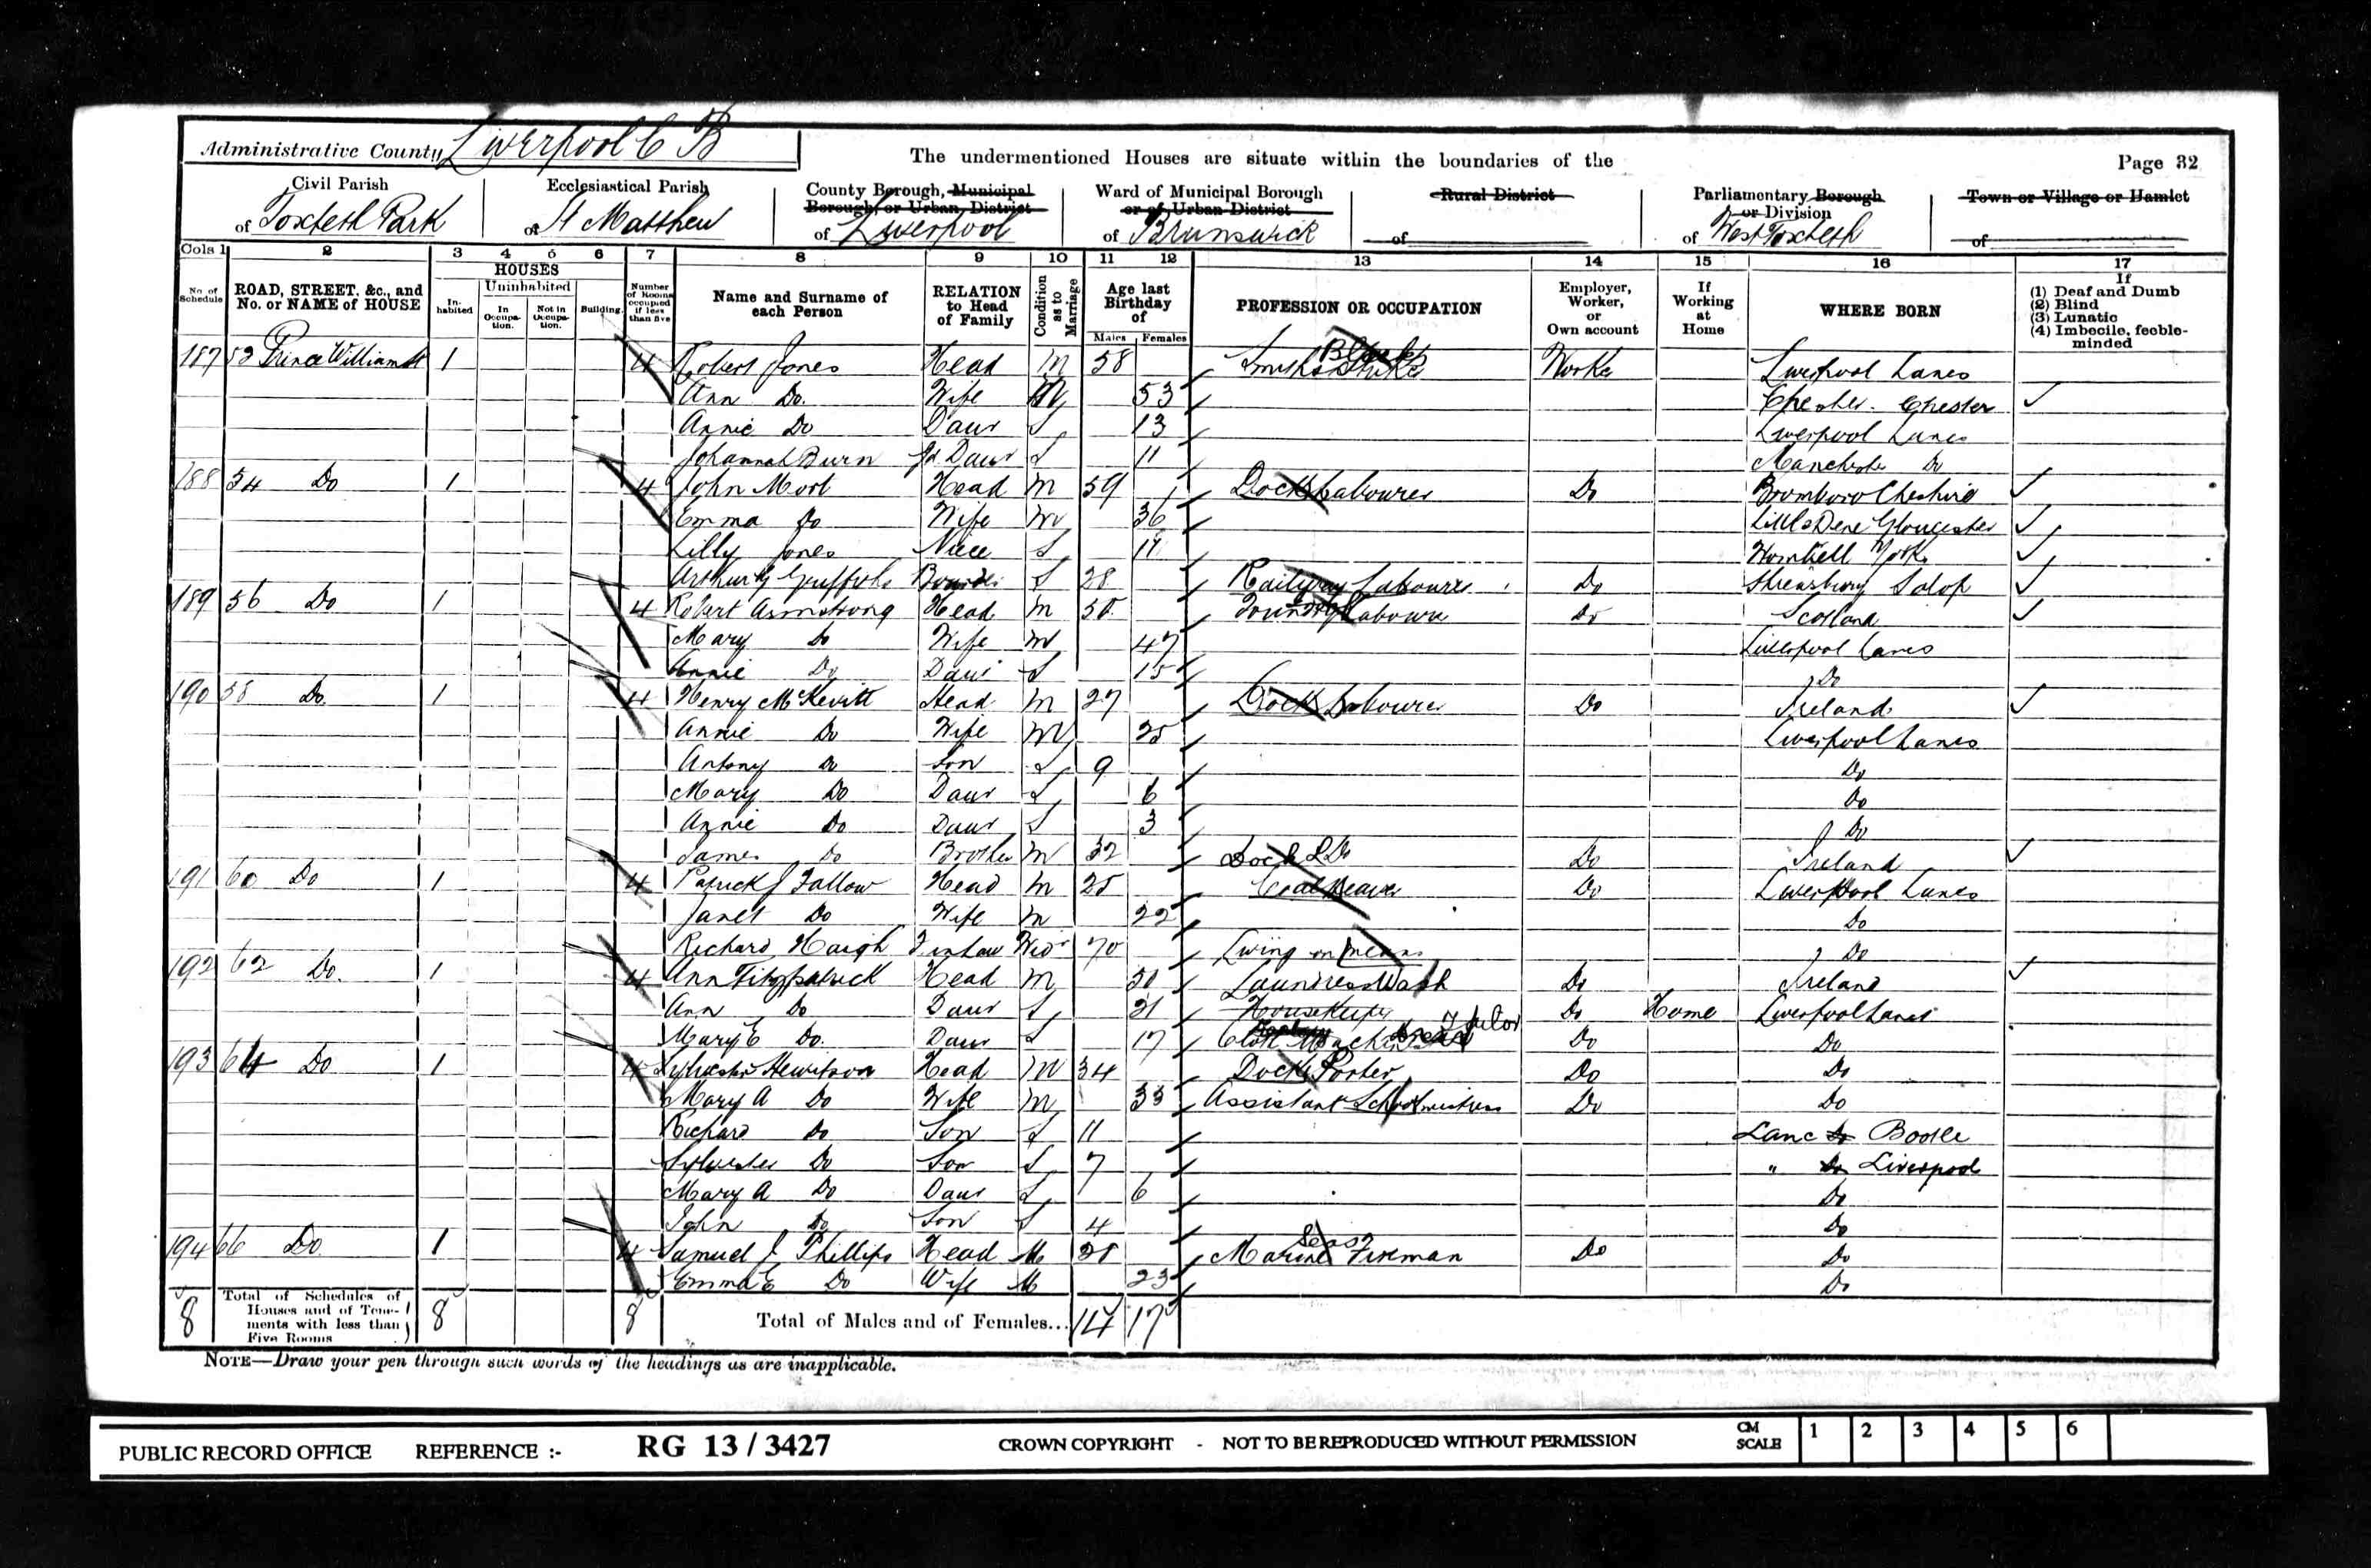 Administrative County Liverpool C B
The undermentioned Houses are situate within the boundaries of the
Page 32
Civil Parish of Toxteth Park
Ecclesiastical Parish of St Matthew
County Borough, Municipal Borough, or Urban District of Liverpool
Ward of Municipal Borough or of Urban District of Brunswick
Rural District of
Parliamentary Borough or Division of West Toxteth
Town or Village or Hamlet of
Cols 1 2 3 4 5 6 7 8 9 10 11 12 13 14 15 16 17
No. of Schedule
ROAD, STREET, &c., and No. or NAME of HOUSE
HOUSES
Inhabited
Uninhabited
In Occupation.
Not in Occupation.
Building.
Number of Rooms occupied if less than five
Name and Surname of each Person
RELATION to Head of Family
Condition as to Marriage
Age last Birthday of
Males Females
PROFESSION OR OCCUPATION
Employer, Worker, or Own account
If Working at Home
WHERE BORN
If (1) Deaf and Dumb (2) Blind (3) Lunatic (4) Imbecile, feeble-minded
187 52 Prince William St 1 4 Robert Jones Head M 58 Smiths Striker Black Worker Liverpool Lancs
Ann Do. Wife M 53 Chester
Annie Do Daur S 13 Liverpool Lancs
Johannah Burn Daur S 11 Manchester Do
188 54 Do 1 4 John Head M 59 Dock Labourer Do Cheshire
Emma Do Wife M 36 Little Dene Gloucester
Lilly Jones Niece S 11 York
Arthur G Griffiths Boarder S 28 Railway Labourer Do Shrewsbury Salop
189 56 Do 1 4 Robert Armstrong Head M 50 Foundry Labourer Do Scotland
Mary Do Wife M 47 Liverpool Lancs
Annie Do Daur S 15 Do
190 58 Do. 1 4 Henry McKevitt Head M 27 Dock Labourer Do Ireland
Annie Do Wife M 25 Liverpool Lancs
Antony Do Son S 9 Do
Mary Do Daur S 6 Do
Annie Do Daur S 3 Do
James Do Brother M 32 Dock L Do Do Ireland
191 60 Do 1 4 Patrick J Fallow Head M 25 Coal Heaver Do Liverpool Lancs
Janet Do Wife M 22 Do
Richard Haigh F in Law Widr 70 Living on means Do
192 62 Do. 1 4 Ann Fitzpatrick Head M 50 Laundress Wash Do Ireland
Ann Do Daur S 21 Housekeeper Do Home Liverpool Lancs
Mary E Do. Daur S 17 Cloth Machinist Tailor Do Do
193 64 Do 1 4 Sylvester Hewitson Head M 34 Dock Porter Do Do
Mary A Do Wife M 33 Assistant Schoolmistress Do Do
Richard Do Son S 11 Lanc Do Bootle
Sylvester Do Son S 7 " Do Liverpool
Mary A Do Daur S 6 Do
John Do Son S 4 Do
194 66 Do 1 4 Samuel J Phillips Head M 28 Marine Fireman Seas Do Do
Emma E Do Wife M 23 Do
8 Total of Schedules of Houses and of Tenements with less than Five Rooms 8 8 Total of Males and of Females... 14 17
NOTE—Draw your pen through such words of the headings as are inapplicable.
PUBLIC RECORD OFFICE REFERENCE :- RG 13 / 3427 CROWN COPYRIGHT - NOT TO BE REPRODUCED WITHOUT PERMISSION CM SCALE 1 2 3 4 5 6